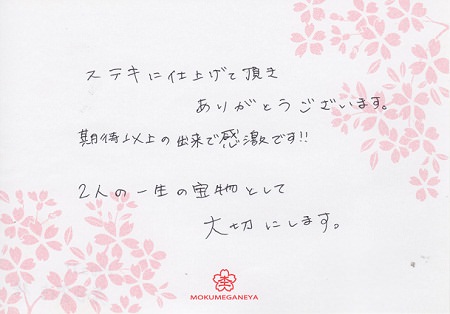 ステキに仕上げて頂き
ありがとうございます。
期待以上の出来で感激です!!
2人の一生の宝物として
大切にします。
MOKUMEGANEYA